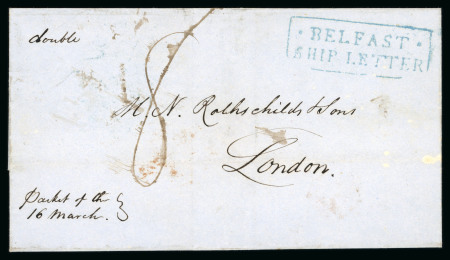 double
· BELFAST ·
SHIP LETTER
8
M. N. Rothschilds & Sons
London.
Packet of the
16 March.